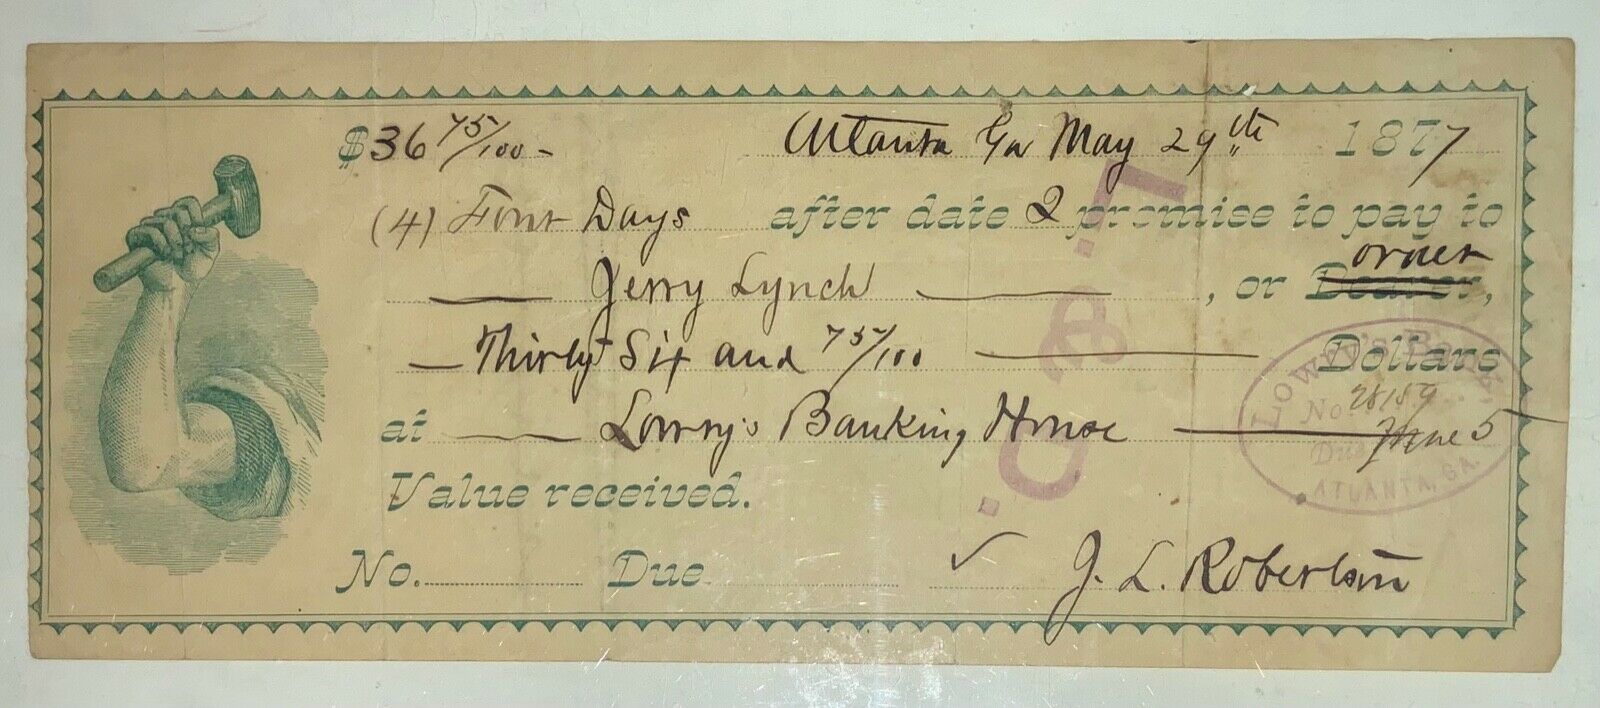 $36 75/100 -
Atlanta Ga May 29th 1877
(4) Four Days after date I promise to pay to
Jerry Lynch, or Bearer, order
Thirty Six and 75/100 Dollars
at Lowry's Banking House
Value received.
No. Due
J. L. Robertson
LOWRY'S BANK
No 28159
Due June 5
ATLANTA, GA.